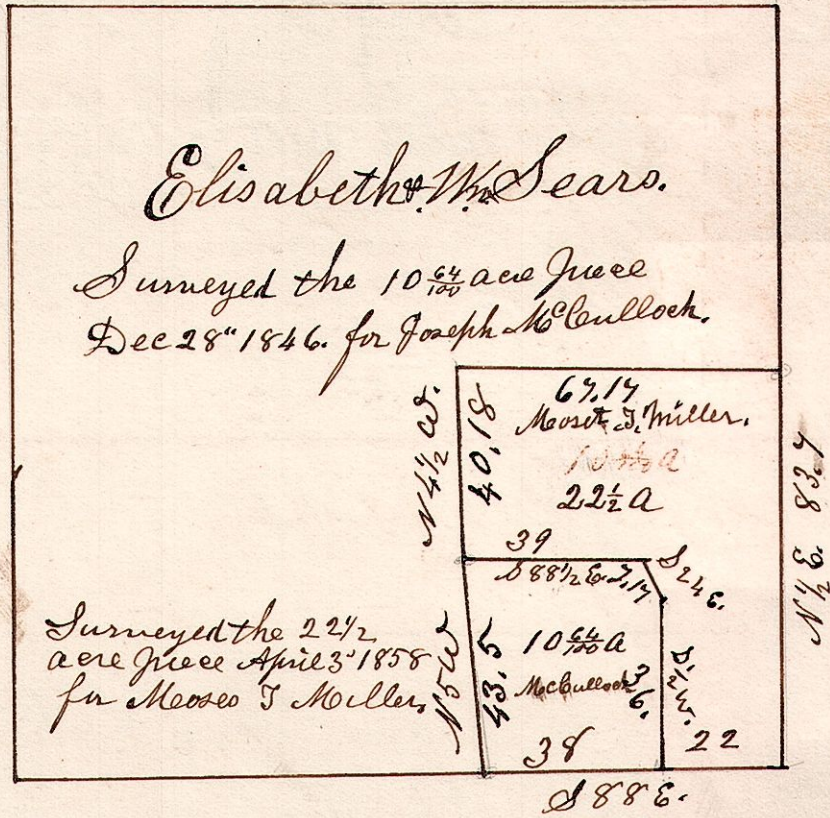 Elisabeth & Wm Sears.
Surveyed the 10 64/100 acre Piece
Dec 28" 1846. for Joseph McCulloch.
67.17
Moses T. Miller.
22 1/2 A
N 4 1/2 W.
40.18
39
S 88 1/2 E. 7.17
S 24 E.
N 1/2 E. 83.7
Surveyed the 22 1/2
acre Piece April 3d 1858
for Moses T Miller.
N 5 W
43.5
10 64/100 A
McCulloch
36.
S 1/2 W.
22
38
S 88 E.